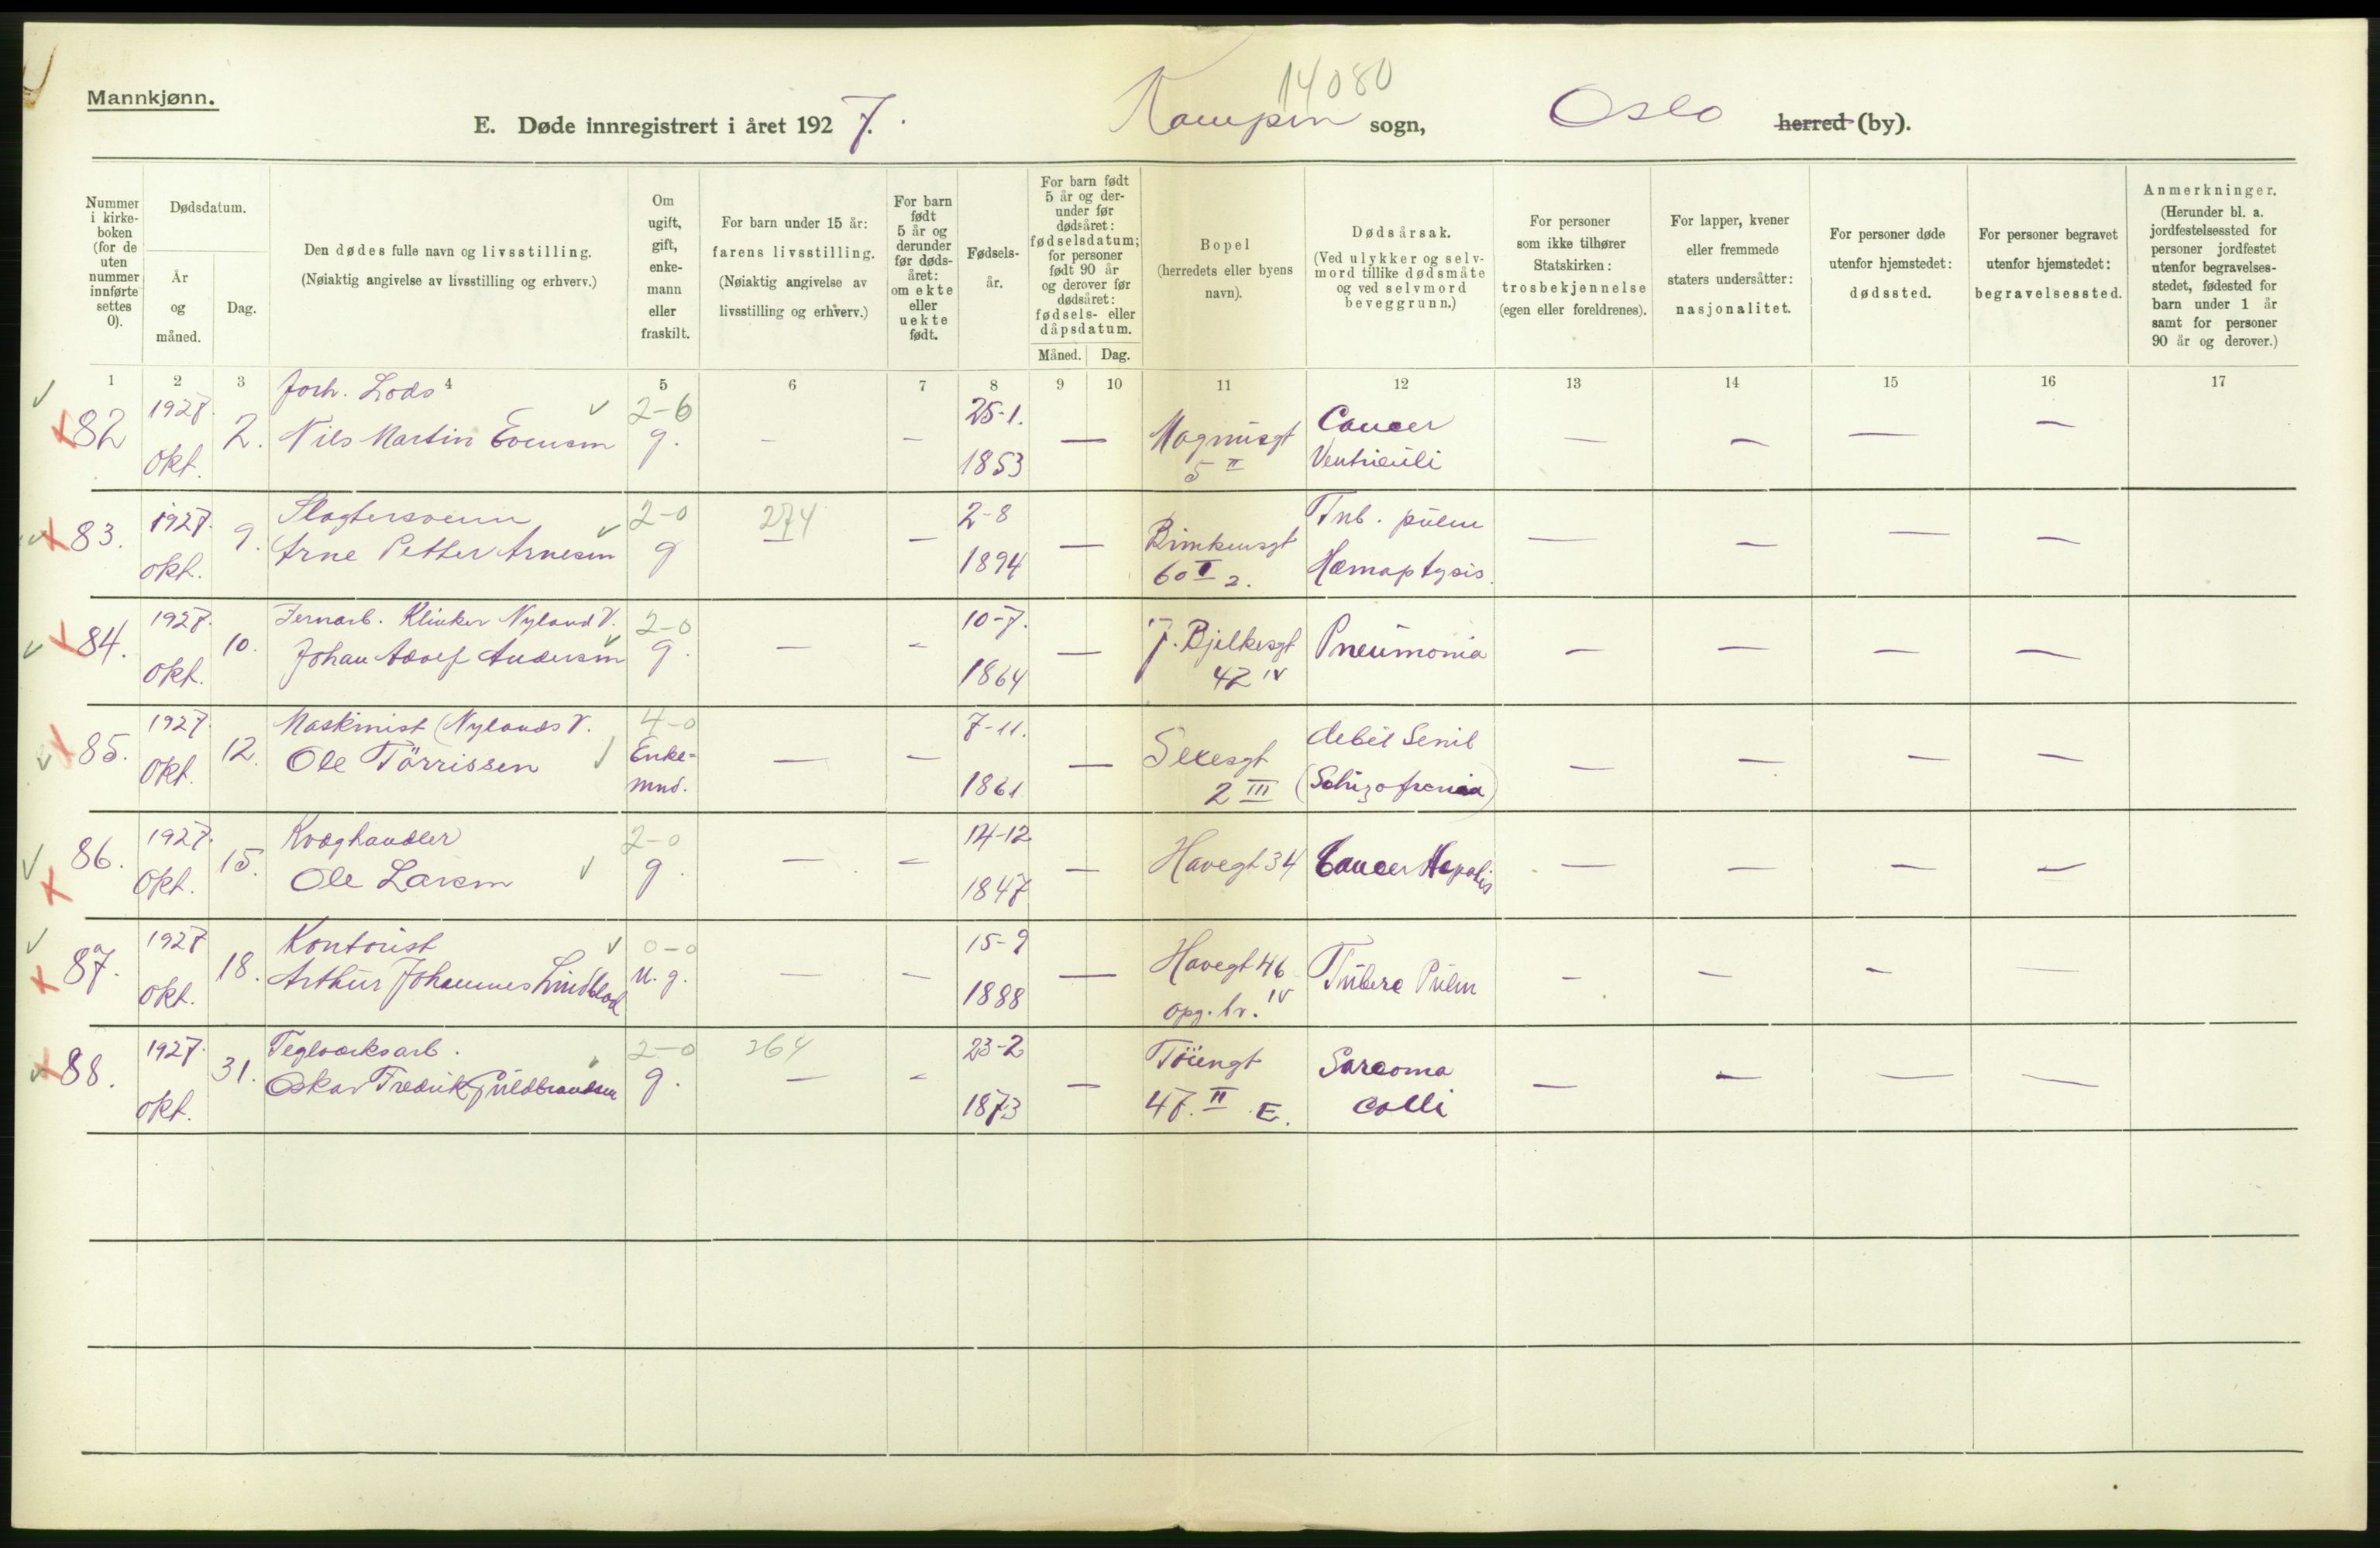 Mannkjønn.
14080
E. Døde innregistrert i året 1927. Kampen sogn, Oslo herred (by).
Nummer i kirke- boken (for de uten nummer innførte settes 0).
Dødsdatum.
År og måned.
Dag.
Den dødes fulle navn og livsstilling.
(Nøiaktig angivelse av livsstilling og erhverv.)
Om ugift, gift, enke- mann eller fraskilt.
For barn under 15 år:
farens livsstilling.
(Nøiaktig angivelse av livsstilling og erhverv.)
For barn født 5 år og derunder før døds- året: om ekte eller uekte født.
Fødsels- år.
For barn født 5 år og der- under før dødsåret: fødselsdatum; for personer født 90 år og derover før dødsåret: fødsels- eller dåpsdatum.
Måned. Dag.
Bopel
(herredets eller byens navn).
Dødsårsak.
(Ved ulykker og selv- mord tillike dødsmåte og ved selvmord beveggrunn.)
For personer som ikke tilhører Statskirken:
trosbekjennelse
(egen eller foreldrenes).
For lapper, kvener eller fremmede staters undersåtter:
nasjonalitet.
For personer døde utenfor hjemstedet:
dødssted.
For personer begravet utenfor hjemstedet:
begravelsessted.
Anmerkninger.
(Herunder bl. a. jordfestelsessted for personer jordfestet utenfor begravelses- stedet, fødested for barn under 1 år samt for personer 90 år og derover.)
1 2 3 4 5 6 7 8 9 10 11 12 13 14 15 16 17
82 1927. Okt. 2. Forh. Lods Nils Martin Evensen 2-6 g. — — 25-1. 1853 — Magnusgt 5 II Cancer Ventriculi — — — —
83. 1927. Okt. 9. Slagtersvenn Arne Petter Arnesen 2-0 g 274 — — 2-8 1894 — Binkensgt 60 I 2. Tub. pulm Hæmoptysis. — — — —
84. 1927. Okt. 10. Jernarb. Klinker Nyland V. Johan Adolf Andersen 2-0 g. — — 10-7. 1864 — J. Bjelkesgt 42 IV Pneumonia — — — —
85. 1927. Okt. 12. Maskinist (Nylands V. Ole Törrissen 4-0 Enke- mnd. — — 7-11. 1861 — 2 III debil Senil (Schizofrenia) — — — —
86. 1927. Okt. 15. Kvæghandler Ole Larsen 2-0 g. — — 14-12 1847 — Havegt 34 Cancer Hepatis — — — —
87. 1927 Okt. 18. Kontorist Arthur Johannes Lindblad 0-0 u. g. — — 15-9 1888 — Havegt 46 opg. IV Pulm — — — —
88. 1927. Okt. 31. Teglverksarb. Oskar Fredrik Guldbrandsen 2-0 g. 264 — — 23-2 1873 — Töiengt 47. II E. Sarcoma colli — — — —